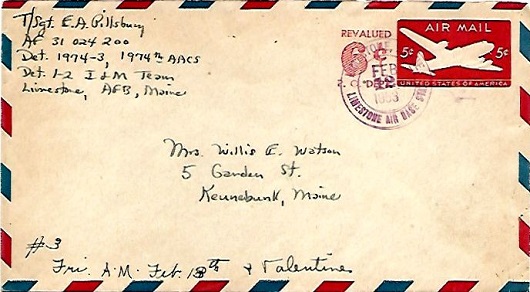 T/Sgt. E.A. Pillsbury
AF 31 024 200
Det. 1974-3, 1974th AACS
Det. 1-2 I & M Team
Limestone, AFB, Maine
REVALUED
6¢
P.O. DEPT.
AIR MAIL
5¢ 5¢
UNITED STATES OF AMERICA
FEB
12
1953
LIMESTONE AIR BASE
Mrs. Willis E. Watson
5 Garden St.
Kennebunk, Maine
#3
Fri. A.M. Feb. 13th & Valentines